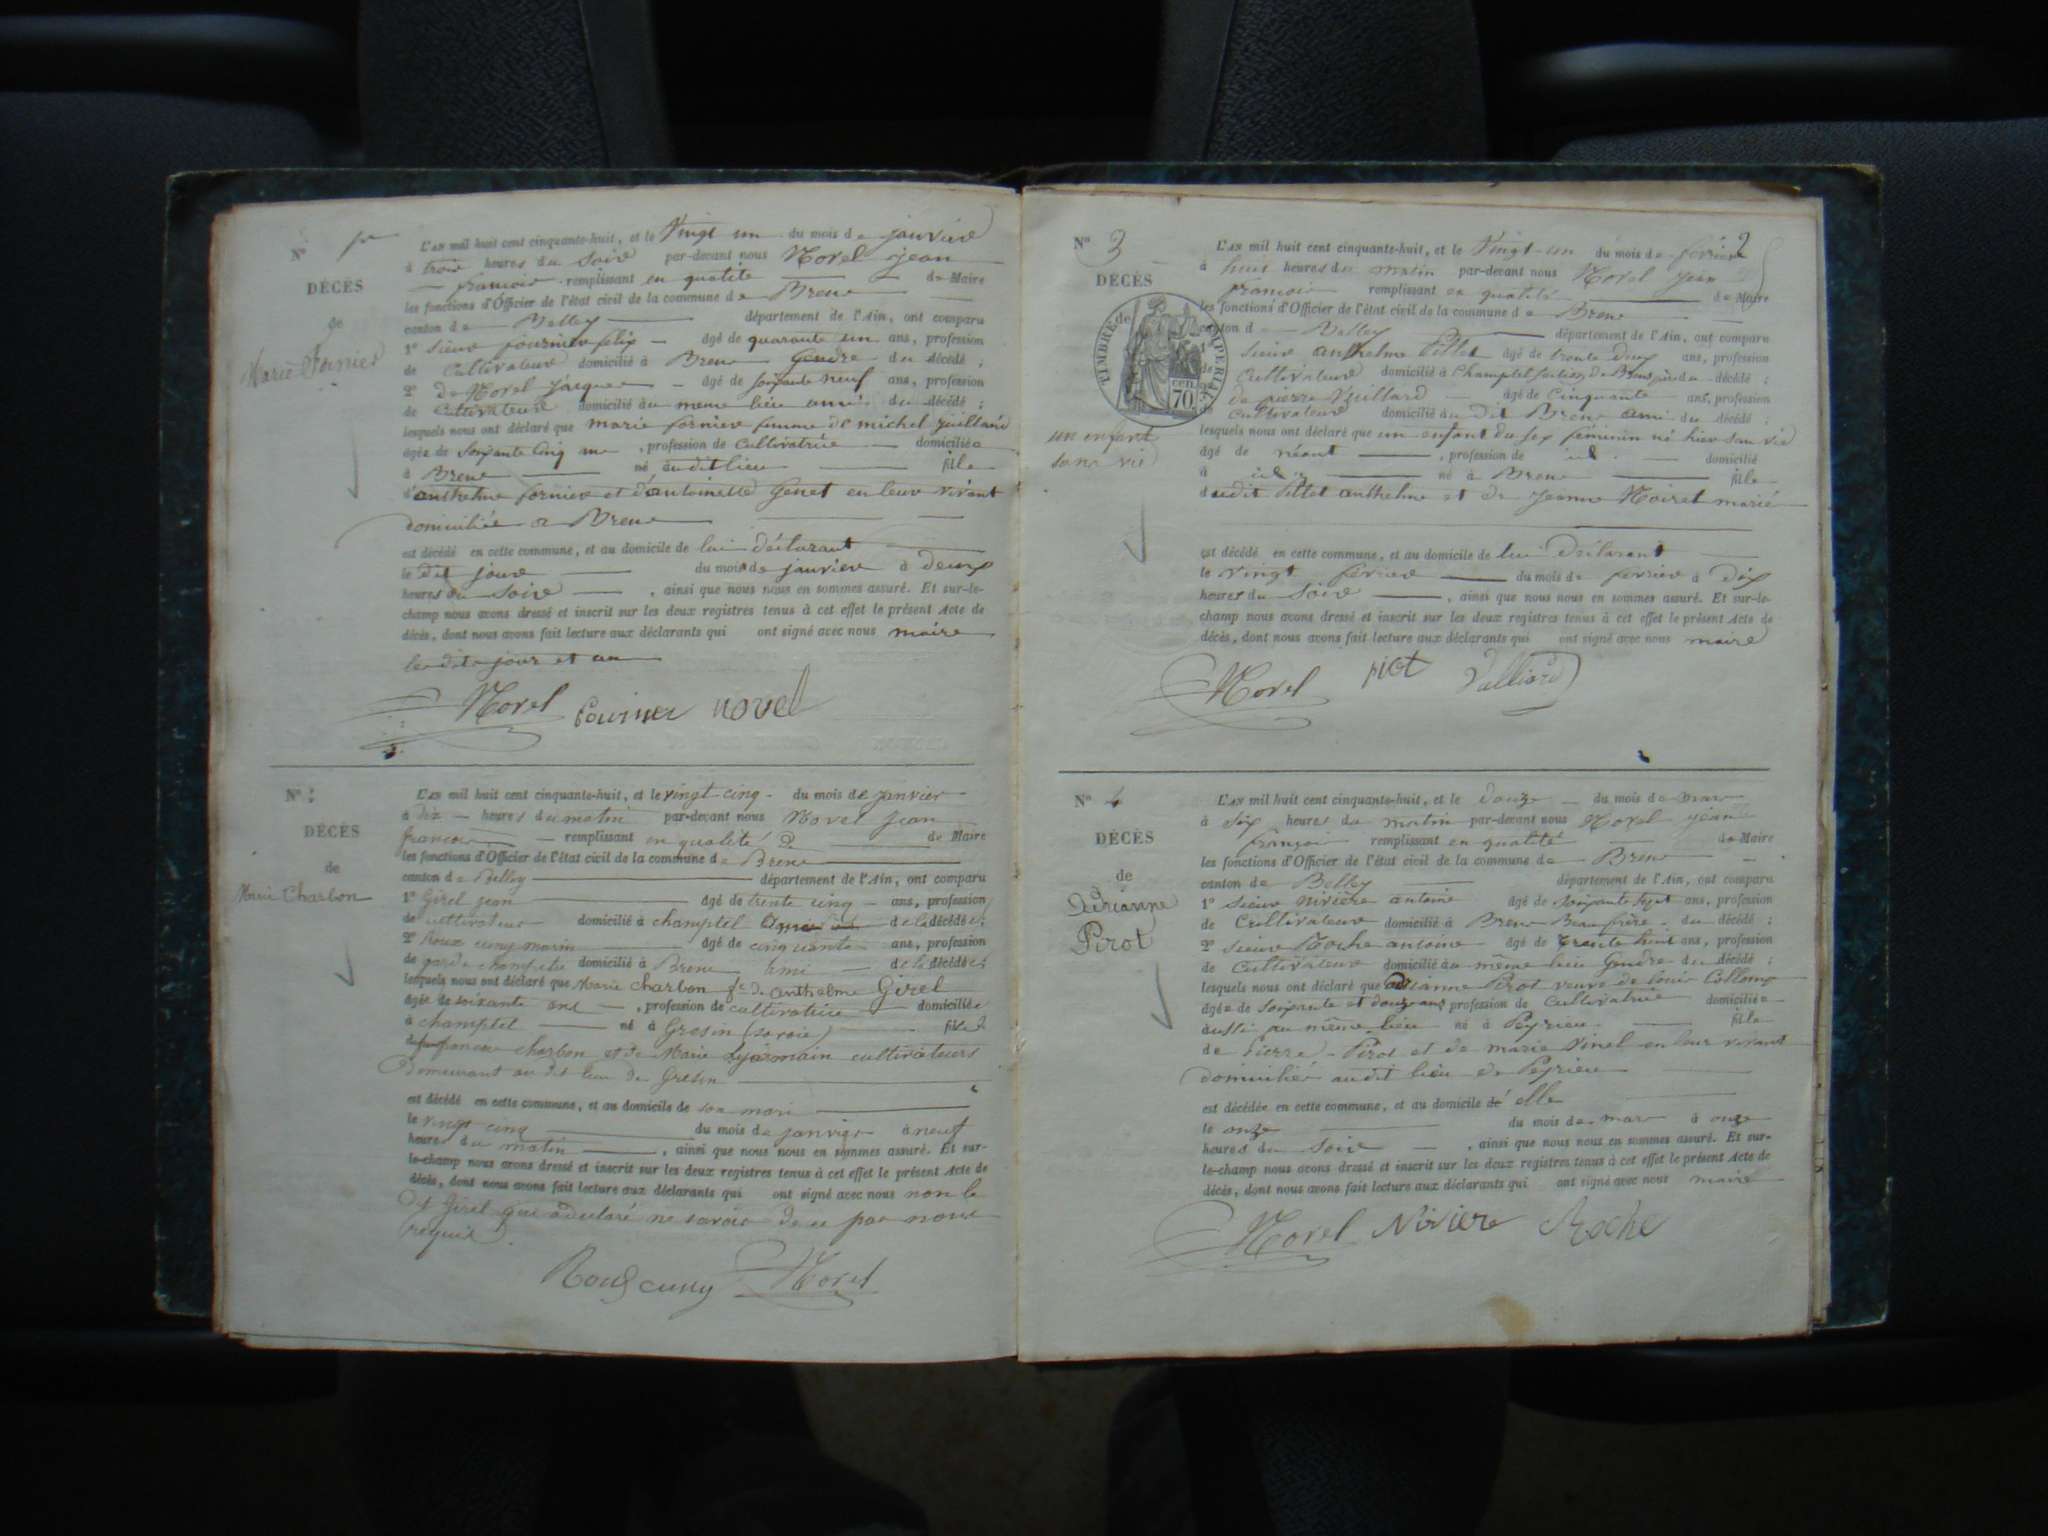 N° 1er
DÉCÈS
de
Marie Fornier
L'AN mil huit cent cinquante-huit, et le Vingt un du mois de janvière
à trois heures du Soire par-devant nous Morel jean
françois remplissant en qualité de Maire
les fonctions d'Officier de l'état civil de la commune de Brens
canton de Belley département de l'Ain, ont comparu
1° Sieur fournier felix âgé de quarante un ans, profession
de Cultivateure domicilié à Brens Gendre du décédé ;
2° de Morel Jacques âgé de soixante neuf ans, profession
de Cultivateure domicilié au meme lieu ami du décédé ;
lesquels nous ont déclaré que marie fornier femme de michel juilland
âgée de soixante Cinq , profession de Cultivatrice domiciliée
à Brens né audit lieu fille
d'anthelme fornier et d'antoinette Genet en leur vivant
domiciliée a Brens
est décédé en cette commune, et au domicile de lui déclarant
le dit jour du mois de janvier à deux
heures du Soire , ainsi que nous nous en sommes assuré. Et sur-le-
champ nous avons dressé et inscrit sur les deux registres tenus à cet effet le présent Acte de
décès, dont nous avons fait lecture aux déclarants qui ont signé avec nous maire
les dits jour et an
Morel fournier novel
N° 2
DÉCÈS
de
Marie Charbon
L'AN mil huit cent cinquante-huit, et le vingt-cinq du mois de janvier
à dix heures du matin par-devant nous Morel jean
francois remplissant en qualité de Maire
les fonctions d'Officier de l'état civil de la commune de Brens
canton de Belley département de l'Ain, ont comparu
1° Girel jean âgé de trente cinq ans, profession
de cultivateur domicilié à champtel de la décédée ;
2° Roux cuny marin âgé de cinquante ans, profession
de garde champetre domicilié à Brens ami de la décédée ;
lesquels nous ont déclaré que Marie charbon fe de anthelme Girel
âgée de soixante ans , profession de cultivatrice domiciliée
à champtel né à Gresin (savoie) fille
de francois charbon et de Marie cultivateurs
Demeurant au dit lieu de Gresin
est décédé en cette commune, et au domicile de son mari
le vingt cinq du mois de janvier à neuf
heures du matin , ainsi que nous nous en sommes assuré. Et sur-
le-champ nous avons dressé et inscrit sur les deux registres tenus à cet effet le présent Acte de
décès, dont nous avons fait lecture aux déclarants qui ont signé avec nous non le
dt Girel qui a declaré ne savoir de ce par nous
requis.
Roux cuny Morel
2
N° 3
DÉCÈS
de
TIMBRE IMPERIAL
70 cen
un enfant
sans vie
L'AN mil huit cent cinquante-huit, et le Vingt-un du mois de ferrier
à huit heures du matin par-devant nous Morel jean
francois remplissant en qualité de Maire
les fonctions d'Officier de l'état civil de la commune de Brens
canton de Belley département de l'Ain, ont comparu
sieur anthelme Pittet âgé de trente deux ans, profession
Cultivateure domicilié à Champtel de Brens du décédé ;
de pierre Vuillard âgé de Cinquante ans, profession
de Cultivateure domicilié au dit Brens ami du décédé ;
lesquels nous ont déclaré que un enfant du sex féminin né hier san vie
âgé de néant , profession de id. domicilié
à id né à Brens fille
dudit Pittet anthelme et de jeanne Moiret marié
est décédé en cette commune, et au domicile de lui Déclarant
le vingt férrier du mois de ferrier à dix
heures du Soire , ainsi que nous nous en sommes assuré. Et sur-le-
champ nous avons dressé et inscrit sur les deux registres tenus à cet effet le présent Acte de
décès, dont nous avons fait lecture aux déclarants qui ont signé avec nous maire
Morel Vulliard
N° 4
DÉCÈS
de
Adrianne
Pirot
L'AN mil huit cent cinquante-huit, et le douze du mois de mar
à six heures du matin par-devant nous Morel jean
françois remplissant en qualité de Maire
les fonctions d'Officier de l'état civil de la commune de Brens
canton de Belley département de l'Ain, ont comparu
1° sieur nivière antoine âgé de soixante sept ans, profession
de Cultivateure domicilié à Brens Beaufrère du décédé ;
2° sieur Roche antoine âgé de trente huit ans, profession
de Cultivateure domicilié au même lieu Gendre du décédé ;
lesquels nous ont déclaré que adrianne Pirot veuve de louis Collomp
âgée de soixante et douze ans profession de Cultivatrice domiciliée
aussi au même lieu né à Peyrieu fille
de Pierre Pirot et de marie Vinel en leur vivant
domiciliés audit lieu de Peyrieu
est décédée en cette commune, et au domicile de elle
le onze du mois de mar à onze
heures du soire , ainsi que nous nous en sommes assuré. Et sur-
le-champ nous avons dressé et inscrit sur les deux registres tenus à cet effet le présent Acte de
décès, dont nous avons fait lecture aux déclarants qui ont signé avec nous maire
Morel Nivière Roche